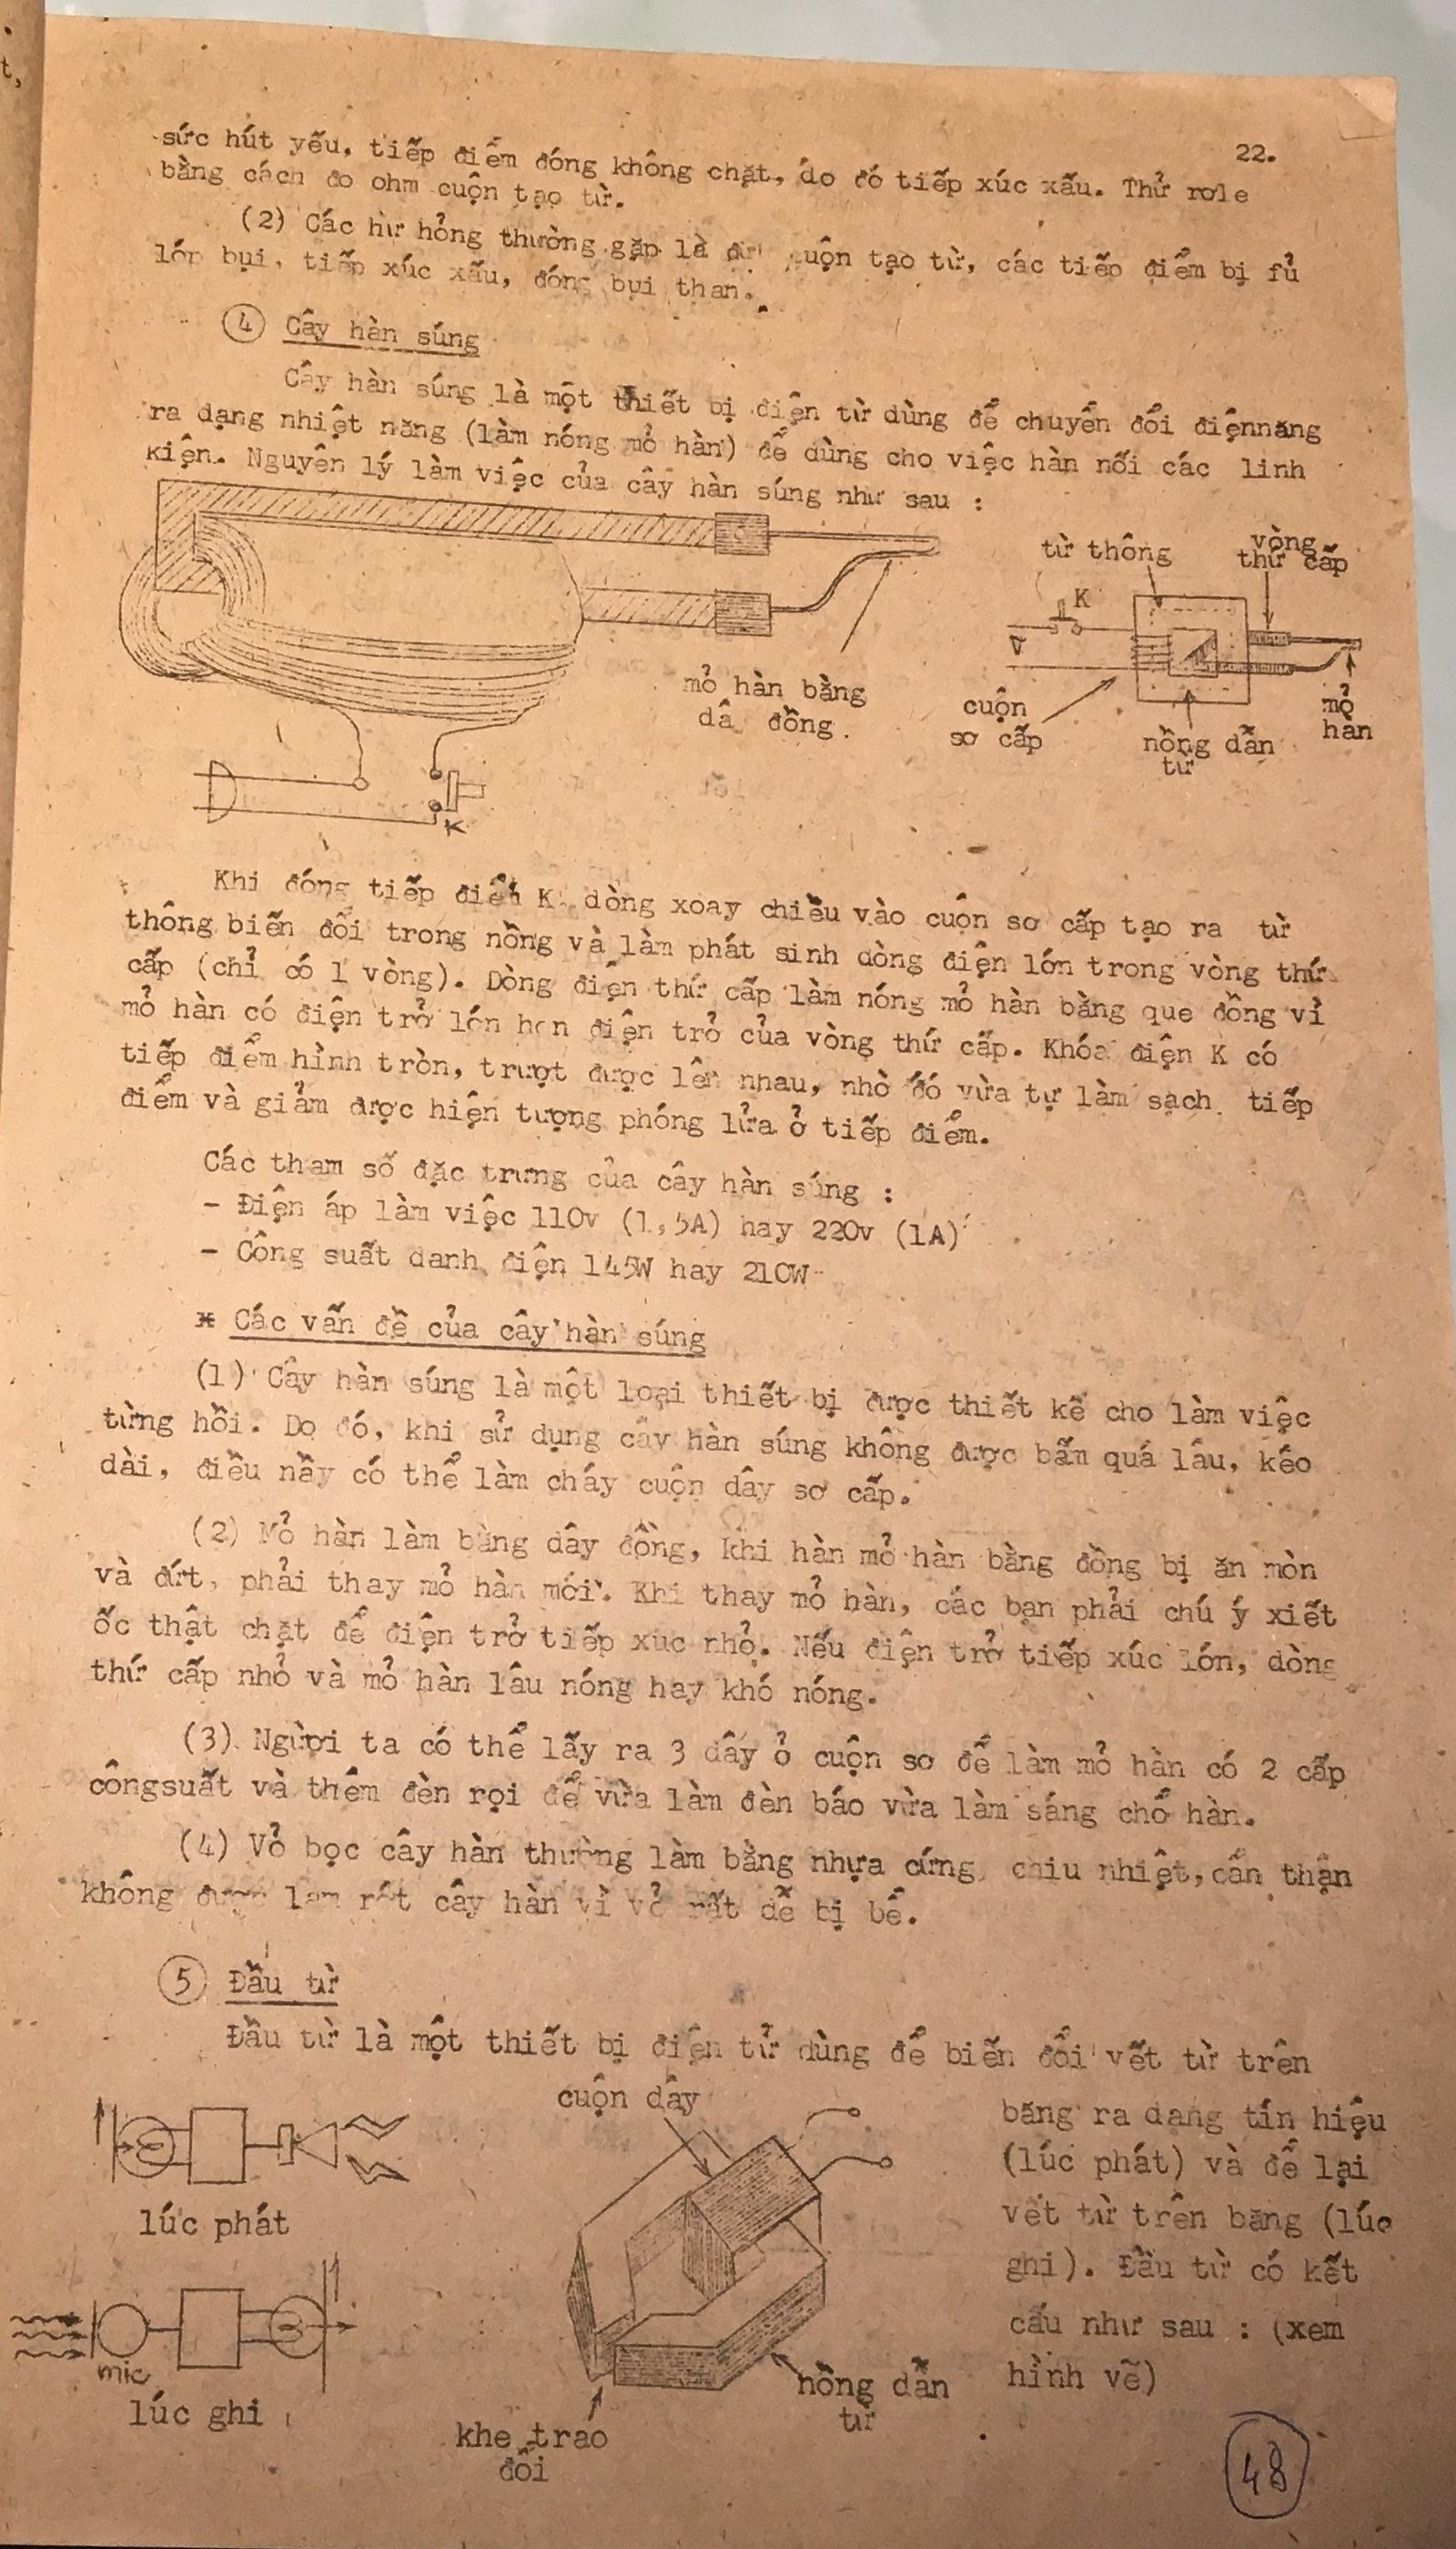 22.
sức hút yếu, tiếp điểm đóng không chặt, do đó tiếp xúc xấu. Thử rơle
bằng cách đo ohm cuộn tạo từ.
(2) Các hư hỏng thường gặp là cuộn tạo từ, các tiếp điểm bị fủ
lớp bụi, tiếp xúc xấu, đóng bụi than.
4 Cây hàn súng
Cây hàn súng là một thiết bị điện từ dùng để chuyển đổi điệnnăng
ra dạng nhiệt năng (làm nóng mỏ hàn) để dùng cho việc hàn nối các linh
kiện. Nguyên lý làm việc của cây hàn súng như sau :
từ thông
vòng
thứ cấp
K
V
mỏ hàn bằng
dâ đồng.
cuộn
sơ cấp
nồng dẫn
từ
mỏ
hàn
K
Khi đóng tiếp điểm K dòng xoay chiều vào cuộn sơ cấp tạo ra từ
thông biến đổi trong nồng và làm phát sinh dòng điện lớn trong vòng thứ
cấp (chỉ có 1 vòng). Dòng điện thứ cấp làm nóng mỏ hàn bằng que đồng vì
mỏ hàn có điện trở lớn hơn điện trở của vòng thứ cấp. Khóa điện K có
tiếp điểm hình tròn, trượt được lên nhau, nhờ đó vừa tự làm sạch tiếp
điểm và giảm được hiện tượng phóng lửa ở tiếp điểm.
Các tham số đặc trưng của cây hàn súng :
- Điện áp làm việc 110v (1,5A) hay 220v (1A)
- Công suất danh điện 145W hay 210W
* Các vấn đề của cây hàn súng
(1) Cây hàn súng là một loại thiết bị được thiết kế cho làm việc
từng hồi. Do đó, khi sử dụng cây hàn súng không được bấm quá lâu, kéo
dài, điều nầy có thể làm cháy cuộn dây sơ cấp.
(2) Mỏ hàn làm bằng dây đồng, khi hàn mỏ hàn bằng đồng bị ăn mòn
và đứt, phải thay mỏ hàn mới. Khi thay mỏ hàn, các bạn phải chú ý xiết
ốc thật chặt để điện trở tiếp xúc nhỏ. Nếu điện trở tiếp xúc lớn, dòng
thứ cấp nhỏ và mỏ hàn lâu nóng hay khó nóng.
(3) Người ta có thể lấy ra 3 dây ở cuộn sơ để làm mỏ hàn có 2 cấp
côngsuất và thêm đèn rọi để vừa làm đèn báo vừa làm sáng chổ hàn.
(4) Vỏ bọc cây hàn thường làm bằng nhựa cứng chiu nhiệt, cẩn thận
không được làm rớt cây hàn vì vỏ rất dễ bị bể.
5 Đầu từ
Đầu từ là một thiết bị điện tử dùng để biến đổi vết từ trên
băng ra dạng tín hiệu
(lúc phát) và để lại
vết từ trên băng (lúc
ghi). Đầu từ có kết
cấu như sau : (xem
hình vẽ)
cuộn dây
lúc phát
mic
lúc ghi
khe trao
đổi
nồng dẫn
từ
48